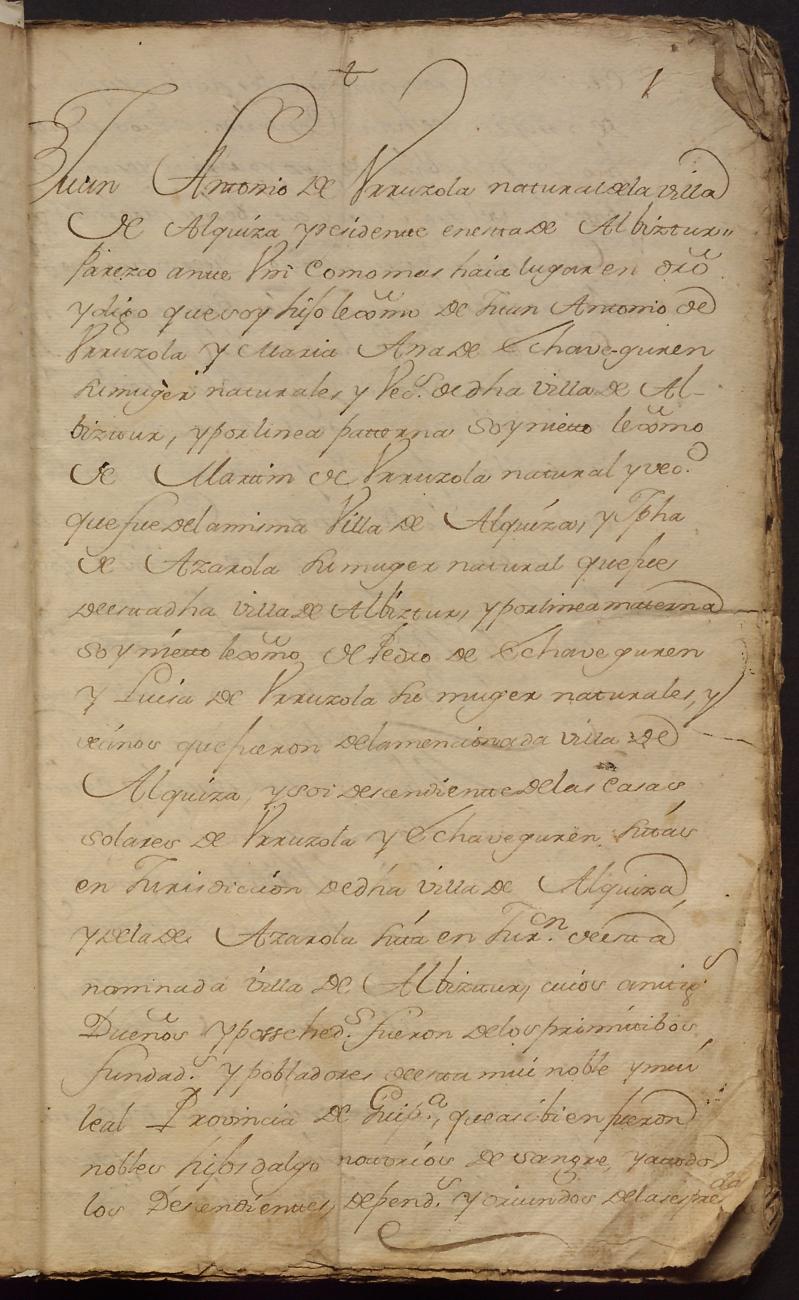 1
Juan Antonio de Urruzola natural de la villa
de Alquiza y residente en esta de Albiztur
Parezco ante Vm como mas haia lugar en dr̃o
y digo que soy hijo lexmo de Juan Antonio de
Urruzola y Maria Ana de Echaveguren
su muger naturales y Veos. de dha villa de Al-
biztur, y por linea patterna soy nietto lexmo
de Martin de Urruzola natural y veo.
que fue de la misma Villa de Alquiza, y Jpha
de Azarola su muger natural que fue
de esta dha villa de Albiztur, y por linea materna
soy nietto lexmo de Pedro de Echaveguren
y Lucia de Urruzola su muger naturales, y
vecinos que fueron de la mencionada villa de
Alquiza, y soi descendiente de las casas
solares de Urruzola y Echaveguren sitas
en Jurisdiccion de dha villa de Alquiza,
y de la de Azarola sita en Jur.on de esta
nominada villa de Albiztur, cuios antig.s
Dueños y posehed.s fueron de los primitibos
fundad.s y pobladores de esta mui noble y mui
leal Provincia de Guip.a, que asibien fueron
nobles hijosdalgo notorios de sangre, y a todos
los Desendientes, depend.s y oriundos de las espresa